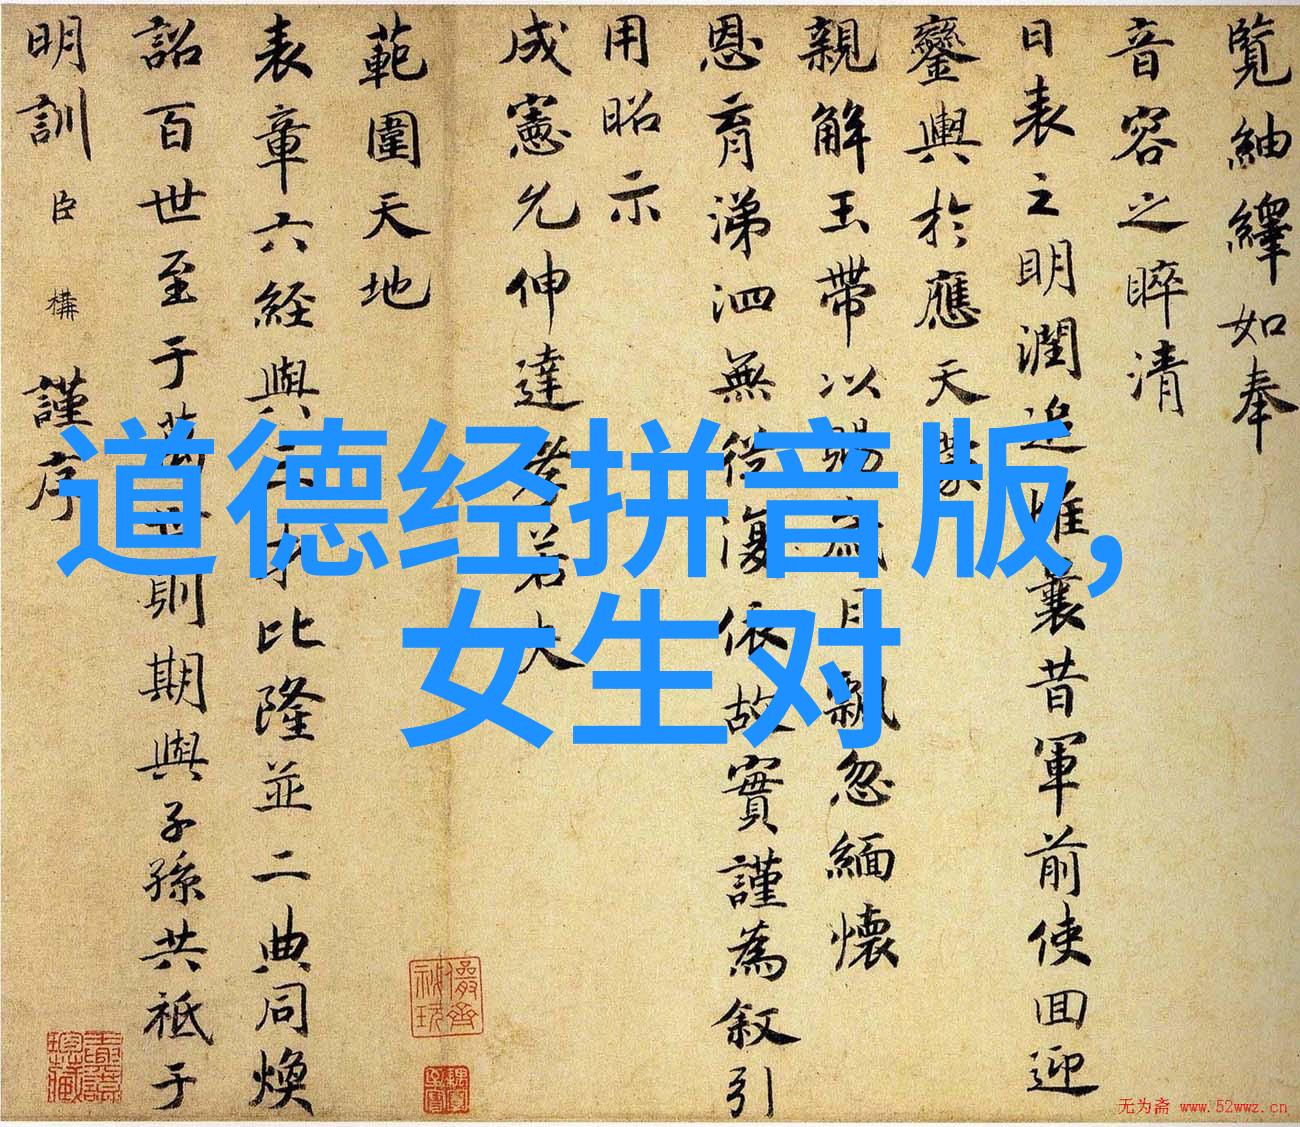 覽紬繹如奉
音容之睟清
日表之明潤追惟曩昔軍前使回迎
鑾輿於應天蒙
親解玉帶以賜歲月飄忽緬懷
恩育涕泗無從復依故實謹為叙引
用昭示
成憲允伸達孝若夫
範圍天地
表章六經與三才比隆並二典同煥
詔百世至于萬世則期與子孫共祗于
明訓臣構謹序
道德经拼音版,
女生对
无为斋 www.52wwz.cn